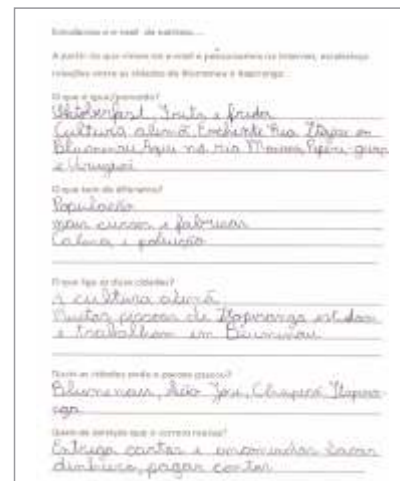 Estudamos o e-mail de notícia....
A partir do que vimos no e-mail e pesquisamos na internet, estabeleça
relações entre as cidades de Blumenau e Itapiranga.
O que é igual/parecido?
Oktoberfest, Fruts e fridor
Cultura alemã, Enchente Rua Itajai em
Blumenau Aqui na ria Macaco, Pepiri, guaçu
e Uruguai
O que tem de diferente?
População
mais cursos e fabricas
Calma e poluição
O que liga as duas cidades?
a cultura alemã
Muitas pessoas de Itapiranga estudam
e trabalham em Blumenau
Quais as cidades onde o pacote passou?
Blumenau, São José, Chapecó, Itapira-
nga
Quais os serviços que o correio realiza?
Entrega cartas e encomendas sacar
dinheiro, pagar contas